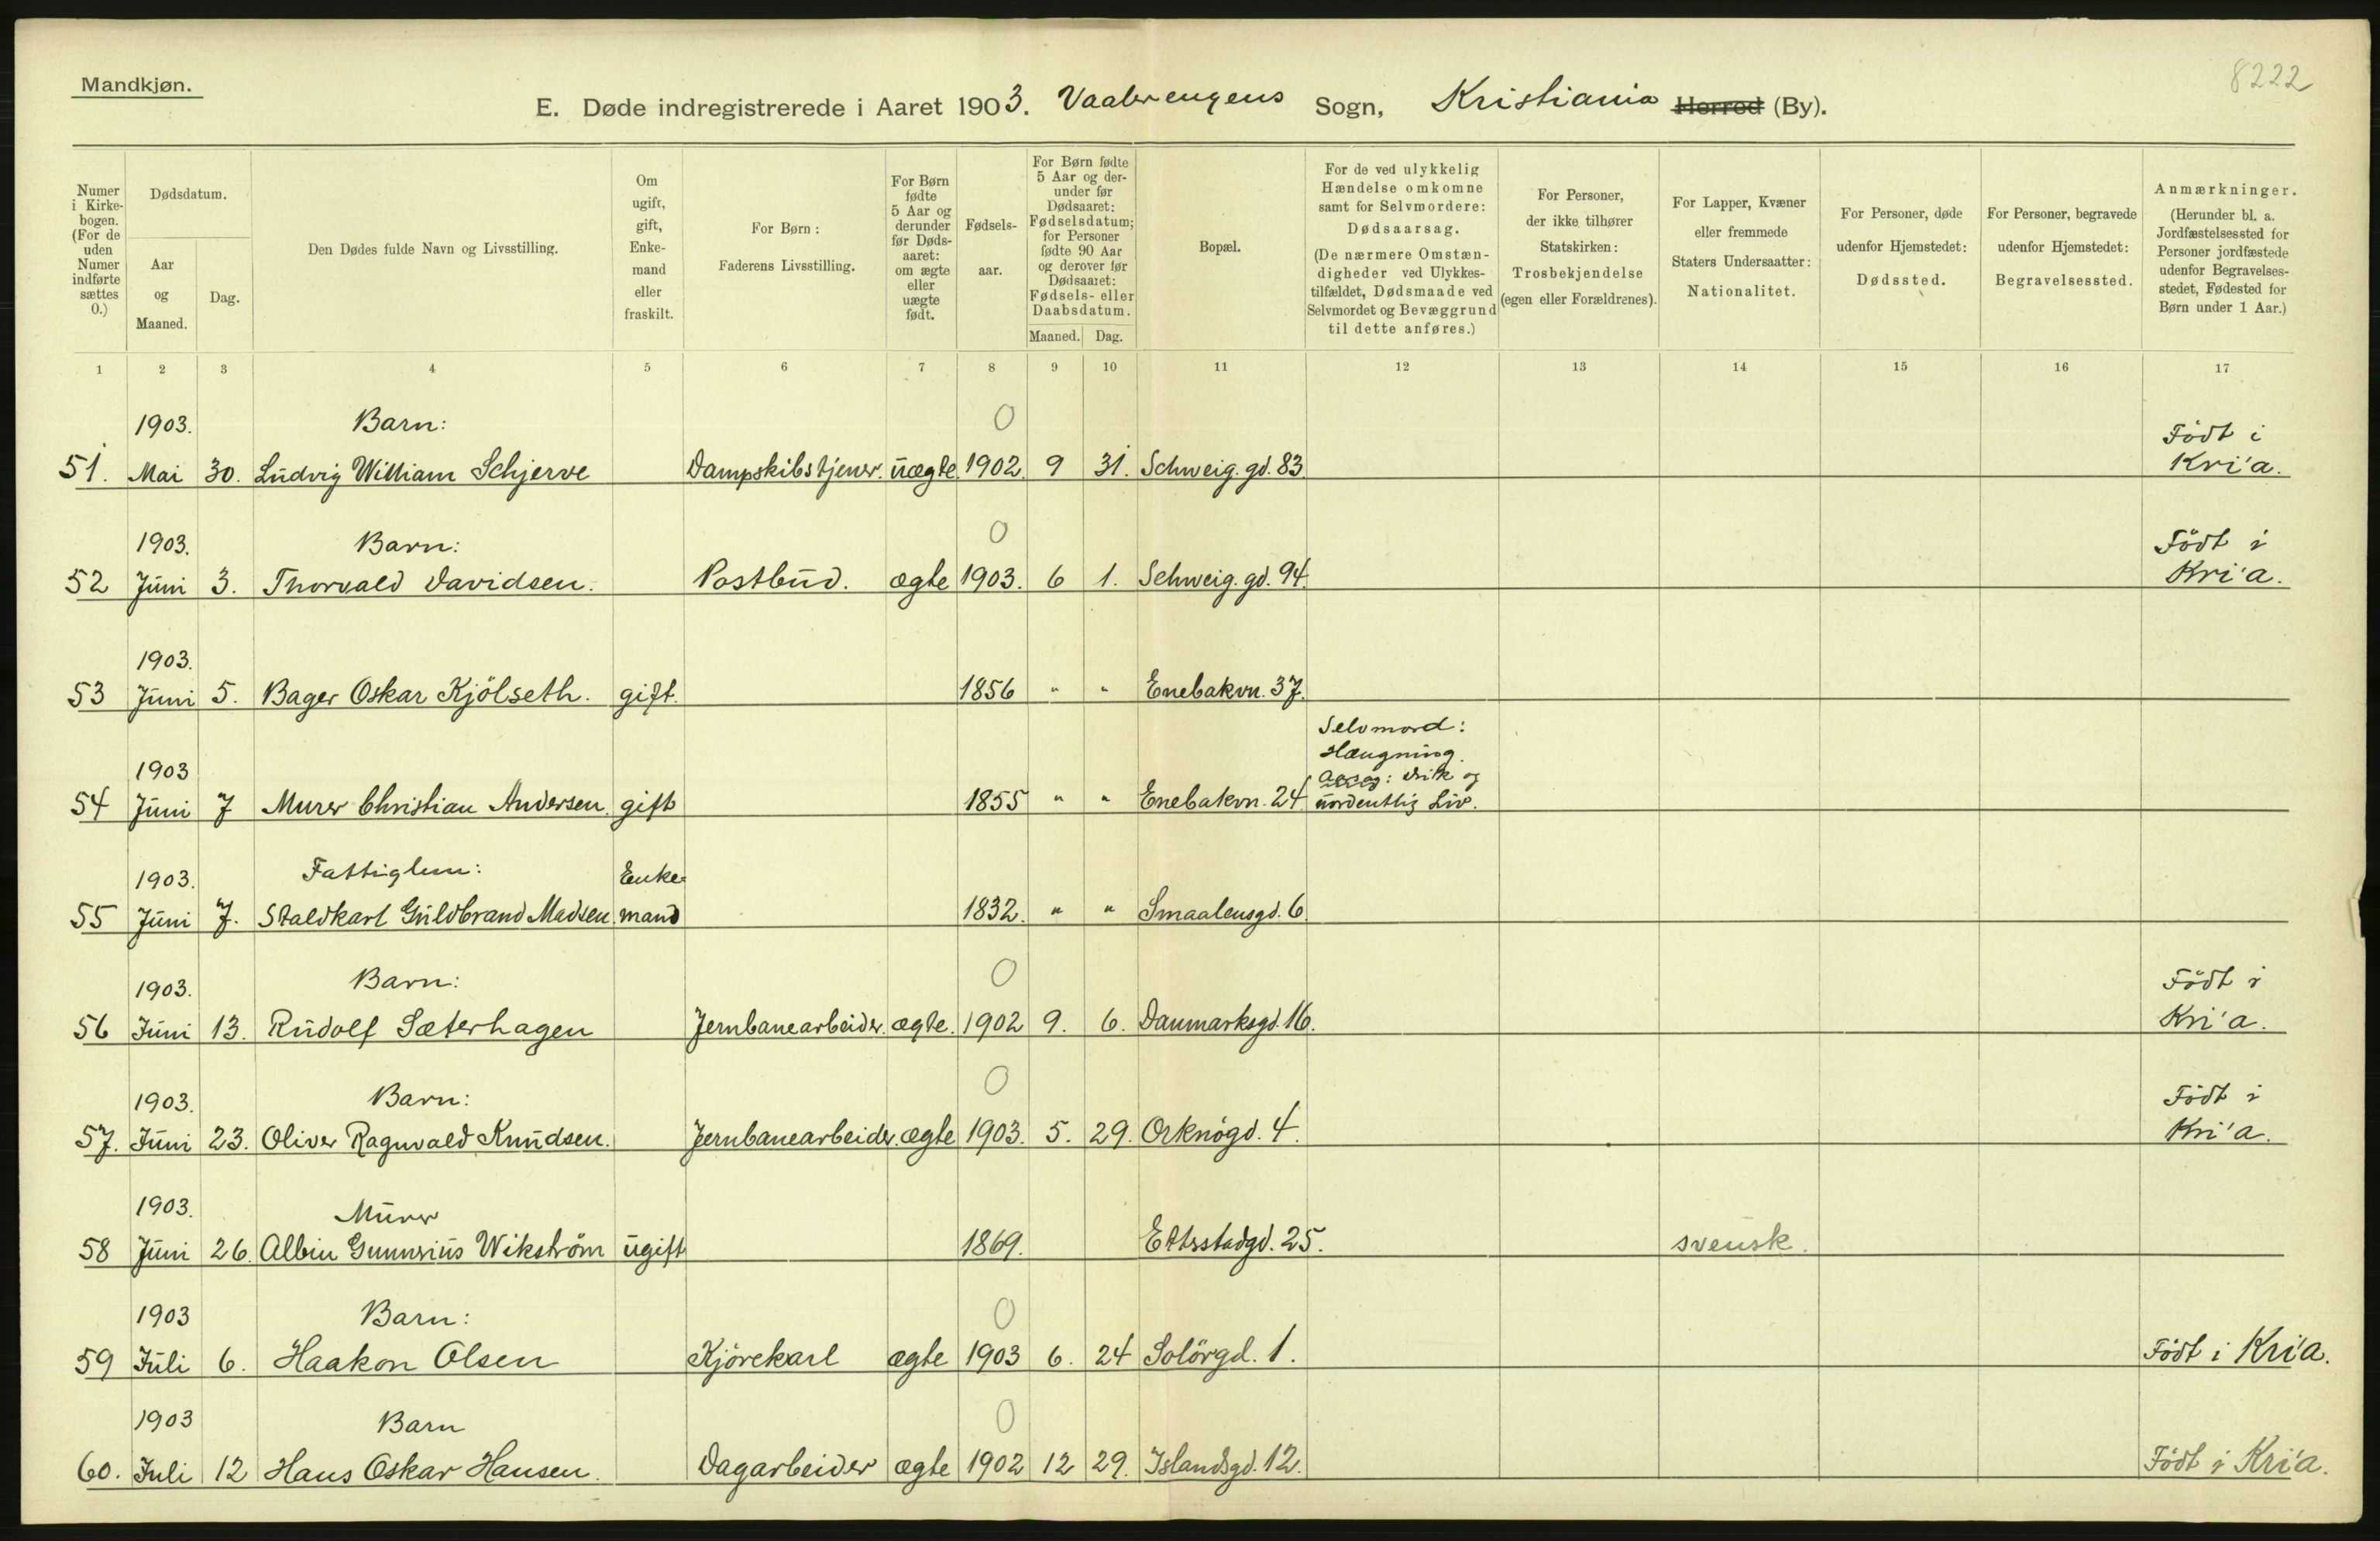 8222
Mandkjøn.
E. Døde indregistrerede i Aaret 1903. Vaalerengens Sogn, Kristiania Herred (By).
Numer i Kirkebogen. (For de uden Numer indførte sættes 0.)
Dødsdatum.
Aar og Maaned.
Dag.
Den Dødes fulde Navn og Livsstilling.
Om ugift, gift, Enkemand eller fraskilt.
For Børn: Faderens Livsstilling.
For Børn fødte 5 Aar og derunder før Dødsaaret: om ægte eller uægte født.
Fødselsaar.
For Børn fødte 5 Aar og derunder før Dødsaaret: Fødselsdatum; for Personer fødte 90 Aar og derover før Dødsaaret: Fødsels- eller Daabsdatum.
Maaned. Dag.
Bopæl.
For de ved ulykkelig Hændelse omkomne samt for Selvmordere: Dødsaarsag. (De nærmere Omstændigheder ved Ulykkestilfældet, Dødsmaade ved Selvmordet og Bevæggrund til dette anføres.)
For Personer, der ikke tilhører Statskirken: Trosbekjendelse (egen eller Forældrenes).
For Lapper, Kvæner eller fremmede Staters Undersaatter: Nationalitet.
For Personer, døde udenfor Hjemstedet: Dødssted.
For Personer, begravede udenfor Hjemstedet: Begravelsessted.
Anmærkninger. (Herunder bl. a. Jordfæstelsessted for Personer jordfæstede udenfor Begravelsesstedet, Fødested for Børn under 1 Aar.)
1 2 3 4 5 6 7 8 9 10 11 12 13 14 15 16 17
1903. Barn: 0 Födt i
51. Mai 30. Ludvig William Schjerve Dampskibstjener. uægte. 1902. 9 31. Schweig. gd. 83. Kri'a.
1903. Barn: 0 Födt i
52 Juni 3. Thorvald Davidsen. Postbud. ægte 1903. 6 1. Schweig. gd. 94. Kri'a.
1903.
53 Juni 5. Bager Oskar Kjölseth. gift. 1856 " " Enebakvn. 37.
Selvmord:
Hængning.
1903 Aarsag: drik og
54 Juni 7 Murer Christian Andersen. gift 1855 " " Enebakvn. 24 uordentlig Liv.
1903. Fattiglem: Enke=
55 Juni 7. Staldkarl Guldbrand Madsen mand 1832. " " Smaalensgd. 6.
1903. Barn: 0 Födt i
56 Juni 13. Rudolf Sæterhagen Jernbanearbeider. ægte. 1902 9. 6. Danmarksgd. 16. Kri'a.
1903. Barn: 0 Födt i
57. Juni 23. Oliver Ragnvald Knudsen. Jernbanearbeider. ægte 1903. 5. 29. Orknögd. 4. Kri'a.
1903. Murer
58 Juni 26. Albin Gunnerius Wikström ugift 1869. Etterstadgd. 25. svensk.
1903 Barn: 0
59 Juli 6. Haakon Olsen Kjörekarl ægte 1903 6. 24 Solörgd. 1. Födt i Kri'a.
1903 Barn 0
60. Juli 12 Hans Oskar Hansen. Dagarbeider ægte 1902 12 29. Islandsgd. 12. Födt i Kri'a.